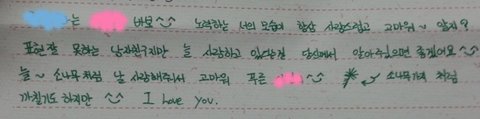 는 바보^^ 노력하는 너의 모습이 항상 사랑스럽고 고마워~ 알지?
표현 잘 못하는 남자친구지만 늘 사랑하고 있다는걸 당신께서 알아주었으면 좋겠어요^^
늘~ 소나무처럼 날 사랑해주어서 고마워 푸른 ^^ 소나무가지 처럼
까칠키도 하지만 ^^ I love you.